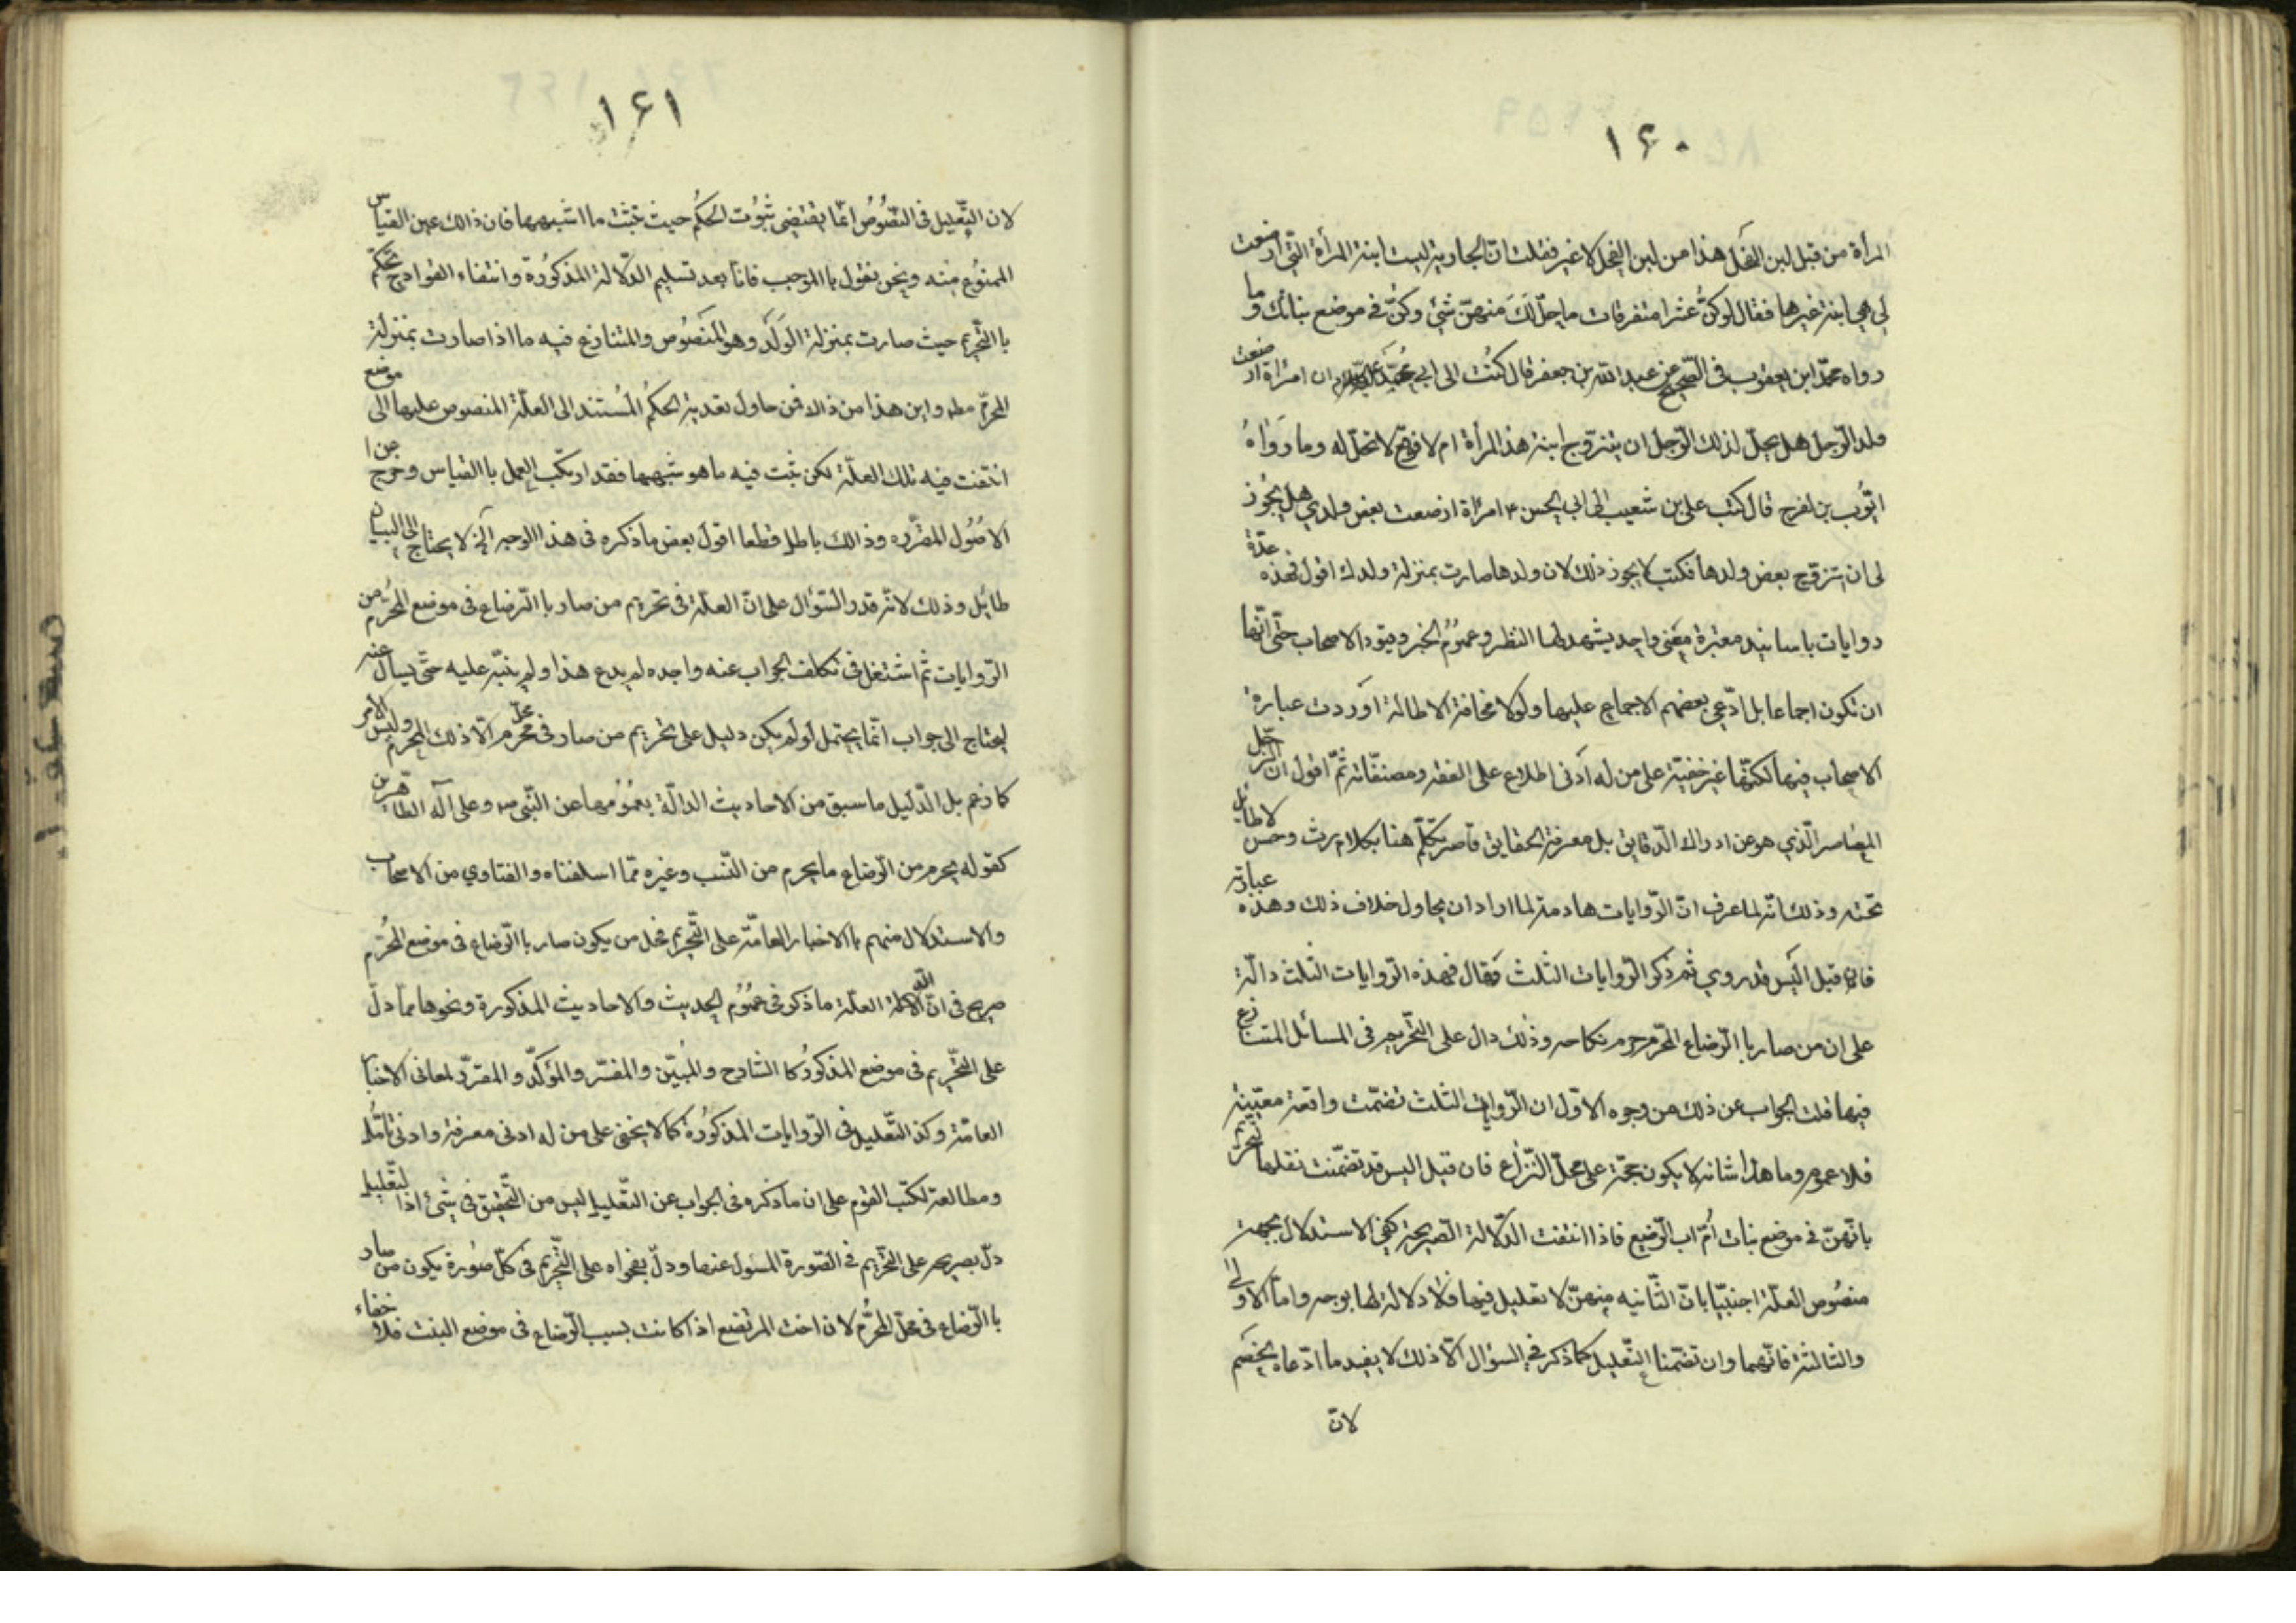 ١۶٠
المرأة من قبل لبن الفحل هذا من لبن الفحل لا غير فقلت انّ الجارية ليست ابنة المرأة التّي ارضعت
لي هي ابنة غيرها فقال لو كنّ عشرا متفرقات ما حلّ لَكَ منهنّ شئ وكنّ في موضع بناتك وما
رواه محمّد ابن يعقوب في الصّحيح عن عبد الله بن جعفر قال كتبُت الى ابي محمّد عليه السلام ان امرأة ارضعت
ولد الرّجل هل يحلّ لذلك الرّجل ان يتزوج ابنة هذ المرأة ام لا فوقّع لا تحلّ له وما رَوَاهُ
ايّوب بن نفرح قال كتب على بن شعيب الى ابي الحسن ٣ امرأة ارضعت بعض ولدي هل يجُوز
لى ان تزوّج بعض ولدها فكتب لا يجوز ذلك لان ولدها صارت بمنزلة ولدك اقول فهذه عدّة
روايات باسانيد معتبرة بمعنى واحد يشهد لها النظر وعمُوم الخبر وفتوى الاصحاب حتّى انّها
ان تكون اجماعا بل ادّعي بعضهم الاجماع عليها ولولا مخافة الاطالة اوردت عبارة
الاصحاب فيها لكنّها غير خفيّة على من له أدنى اطلاع على الفقه ومصنفّاته ثمّ اقول ان الرّجل
المعاصر الّذي هو عن ادراك الدّقايق بل معرفة الحقايق قاصر تكلّم هنا بكلام رث وحسن لا طايل
تحته وذلك انّه لما عرف انّ الرّوايات هادمة لما اراد ان يحاول خلاف ذلك وهذه عبارته
فان قيل اليس قد روي ثم ذكر الرّوايات الثلث وقال فهذه الرّوايات الثلث دالّة
على ان من صار بالرّضاع المحّرم حرم نكاحه وذلك دال على التحّريم في المسائل المتنازع
فيها قلت الجواب عن ذلك من وجوه الاوّل ان الرّوايات الثلث تضمّنت واقعة معيّنة
فلا عموم وما هذا شانه لا يكون حجّة على محلّ النّزاع فان قيل اليس قد تضمّنت تعليل التحريم
بانّهنّ في موضع بنات اُمّ اب الرّضيع فاذا انتفت الدّلالة الصّريحة كفى الاستدلال بجهة
منصُوص العلّة اجنبيّا بانّ الثّانيه منهنّ لا تعليل فيها فلا دلالة لها بوجه وامّا الاولى
والثالثة فانّهما وان تضّمنا التّعليل كما ذكر في السؤال الّا ذلك لا يفيد ما ادّعاه الخصَم
لانّ
١۶١
لان التّعليل فى النصُّوصُ انمّا يقتضى ثبُوت الحكُم حيث تثبت ما اشبهها فان ذالك عين القياس
الممنوُع منه ونحن نقول باالموجب فانّا بعد تسليم الدّلالة المذكوُرة وانتفاء القوادح نحكم
باالتّحريم حيث صارت بمنزلة الوَلَد وهو المنصُوص والمتنازع فيه ما اذا صارت بمنزلة
المحرّم مطه واين هذا من ذاك فمن حاول تعدية الحكُم المُستند الى العلّة المنصوص عليها الى موضع
انتفت فيه تلك العلّة لكن يثبت فيه ما هو شبهها فقد ارتكب العمل باالقياس وخرج عن ا
لاصُوُل المقرّره وذالك باطل قطعا اقول بعض ما ذكره فى هذا الوجه الّذ لا يحتاج الى البيان
طائل وذلك لانّه قد والسّؤال على انّ العلّة فى تحريم من صار باالرّضاع فى موضع المحُرّم من
الرّوايات ثمّ اشتغل فى تكلف الجواب عنه واحده لم يدع هذا ولم ينبّه عليه حتّى يسأل عنه
ليحتاج الى جواب انّما يحتمل لو لم يكن دليل على تحريم من صار فى محلّ محرّم الّا ذلك المحرم وليس الامر
كما زعم بل الدّليل ما سبق من الاحاديث الدالّة بعمُوُمها عن النّبى ص وعلى آله الطّاهرين
كقوله يحرم من الرّضاع ما يحرم من النّسب وغيره ممّا اسلفناه والفتاوي من الاصحاب
والاستدلال منهم باالاخبار العامّة على التّحريم محلّ من يكون صار باالرّضاع فى موضع المحُرّم
صريح فى انّ الله العلّة ما ذكر فى عمُوُم الحديث والاحاديث المذكورة ونحوها ممّا دلّ
على التحّريم فى موضع المذكورُ كا الشارح والمُبيّن والمفسّر والمؤكّد والمقرّر لمعانى الاخبار
العامّة وكذ التّعليل فى الرّوايات المذكوُرة كما لا يخفى على من له ادنى معرفة وادنى تأمّل
ومطالعة لكتب القوم على ان ما ذكره فى الجواب عن التّعليل ليس من التّحقيق فى شئ اذا لتّعليل
دلّ بصريحه على التحّريم في الصّورة المسؤل عنها ودلّ بفحواه على التّحريم فى كلّ صوُرة يكون من صار
باالرّضاع فى محلّ المحرُّم لان اخت المرتضع اذا كانت بسبب الرّضاع فى موضع البنت فلا خفاء